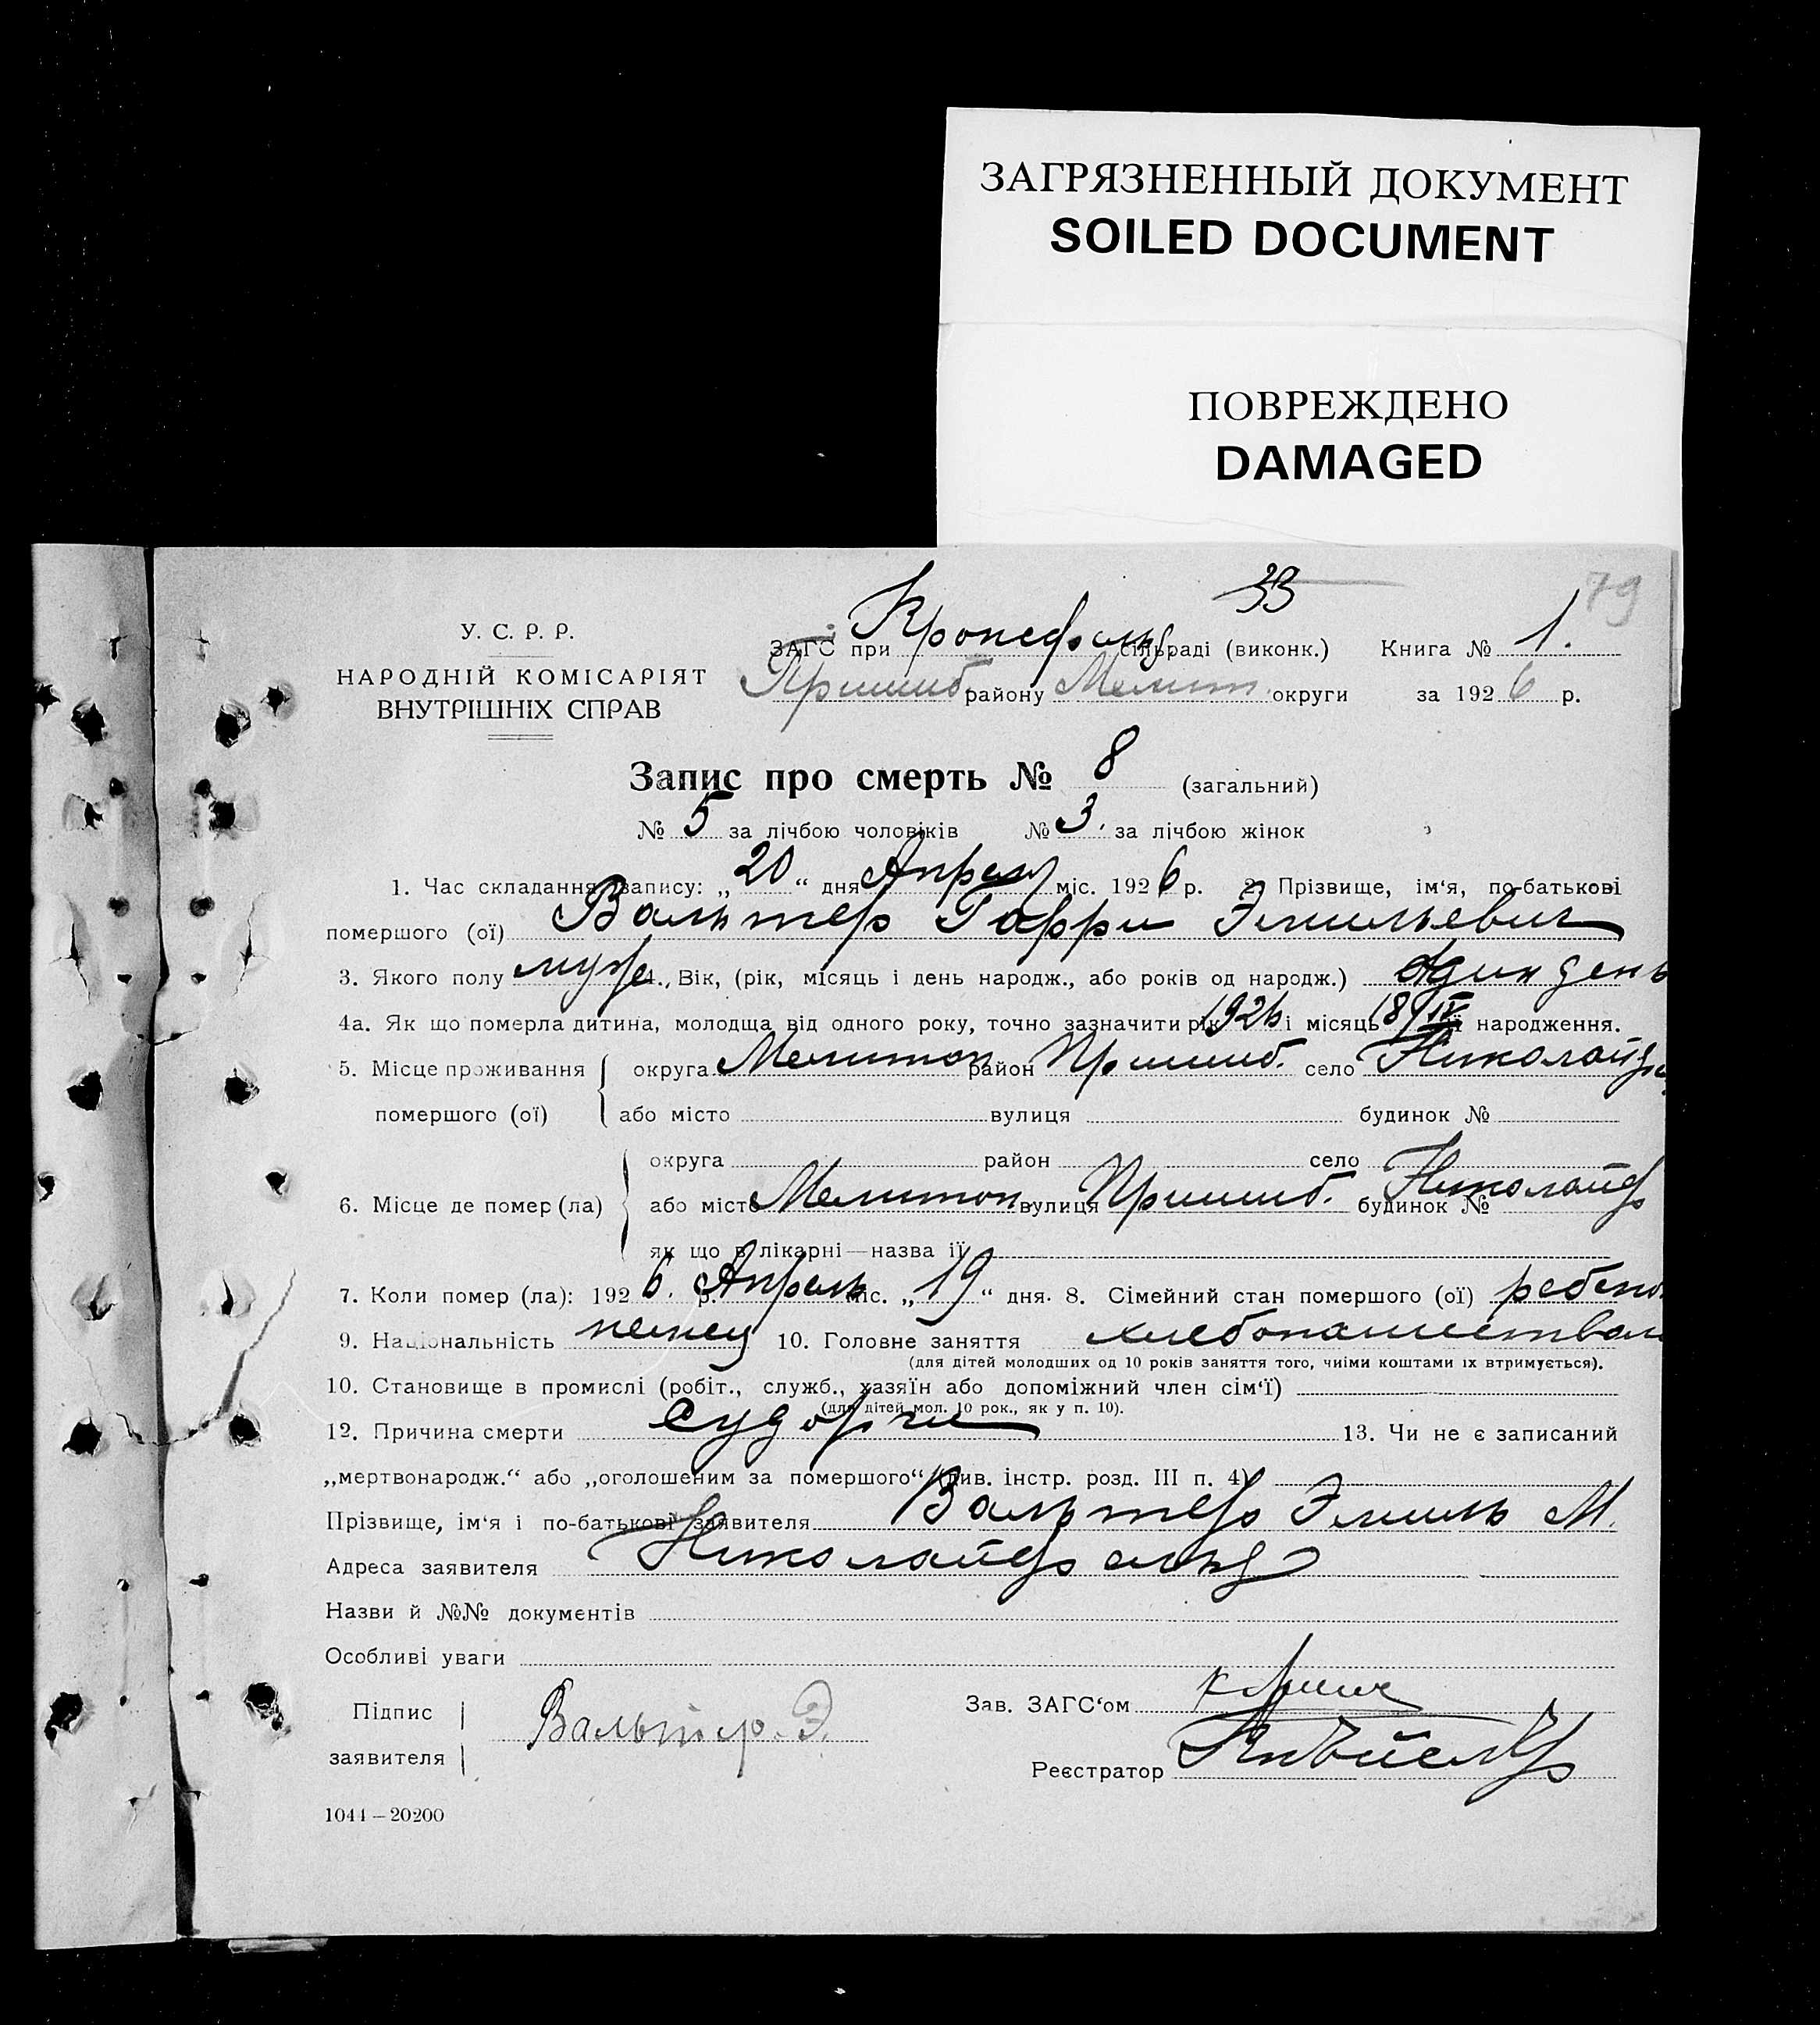 ЗАГРЯЗНЕННЫЙ ДОКУМЕНТ
SOILED DOCUMENT
ПОВРЕЖДЕНО
DAMAGED
33
79
У. С. Р. Р.
НАРОДНІЙ КОМІСАРІЯТ
ВНУТРІШНІХ СПРАВ
ЗАГС при Кронсфельд сільраді (виконк.) Книга № 1.
Пришиб району Мелит. округи за 1926 р.
Запис про смерть № 8 (загальний)
№ 5 за лічбою чоловіків № 3. за лічбою жінок
1. Час складання запису: „20“ дня Апреля міс. 1926 р. 2. Прізвище, ім‘я, по-батькові
помершого (ої) Вальтер Гарри Эмильевич
3. Якого полу муж. 4. Вік, (рік, місяць і день народж., або років од народж.) один день
4а. Як що померла дитина, молодща від одного року, точно зазначити рік 1926 і місяць 18/IV її народження.
5. Місце проживання округа Мелитоп район Пришиб. село Николайф
помершого (ої) або місто вулиця будинок №
округа район село
6. Місце де помер (ла) або місто Мелитоп. вулиця Пришиб. будинок № Николайф
як що в лікарні—назва її
7. Коли помер (ла): 1926. р. Апрель міс. „19“ дня. 8. Сімейний стан помершого (ої) ребено
9. Національність немец 10. Головне заняття хлебопашеством
(для дітей молодших од 10 років заняття того, чиїми коштами їх втримується).
10. Становище в промислі (робіт., служб., хазяїн або допоміжний член сім‘ї)
(для дітей мол. 10 рок., як у п. 10).
12. Причина смерти судорги 13. Чи не є записаний
„мертвонародж.“ або „оголошеним за помершого“ (див. інстр. розд. III п. 4)
Прізвище, ім‘я і по-батькові заявителя Вальтер Эмиль М.
Адреса заявителя Николайфельд
Назви й №№ документів
Особливі уваги
Підпис
заявителя Вальтер. Э.
Зав. ЗАГС‘ом
Реєстратор
1044—20200